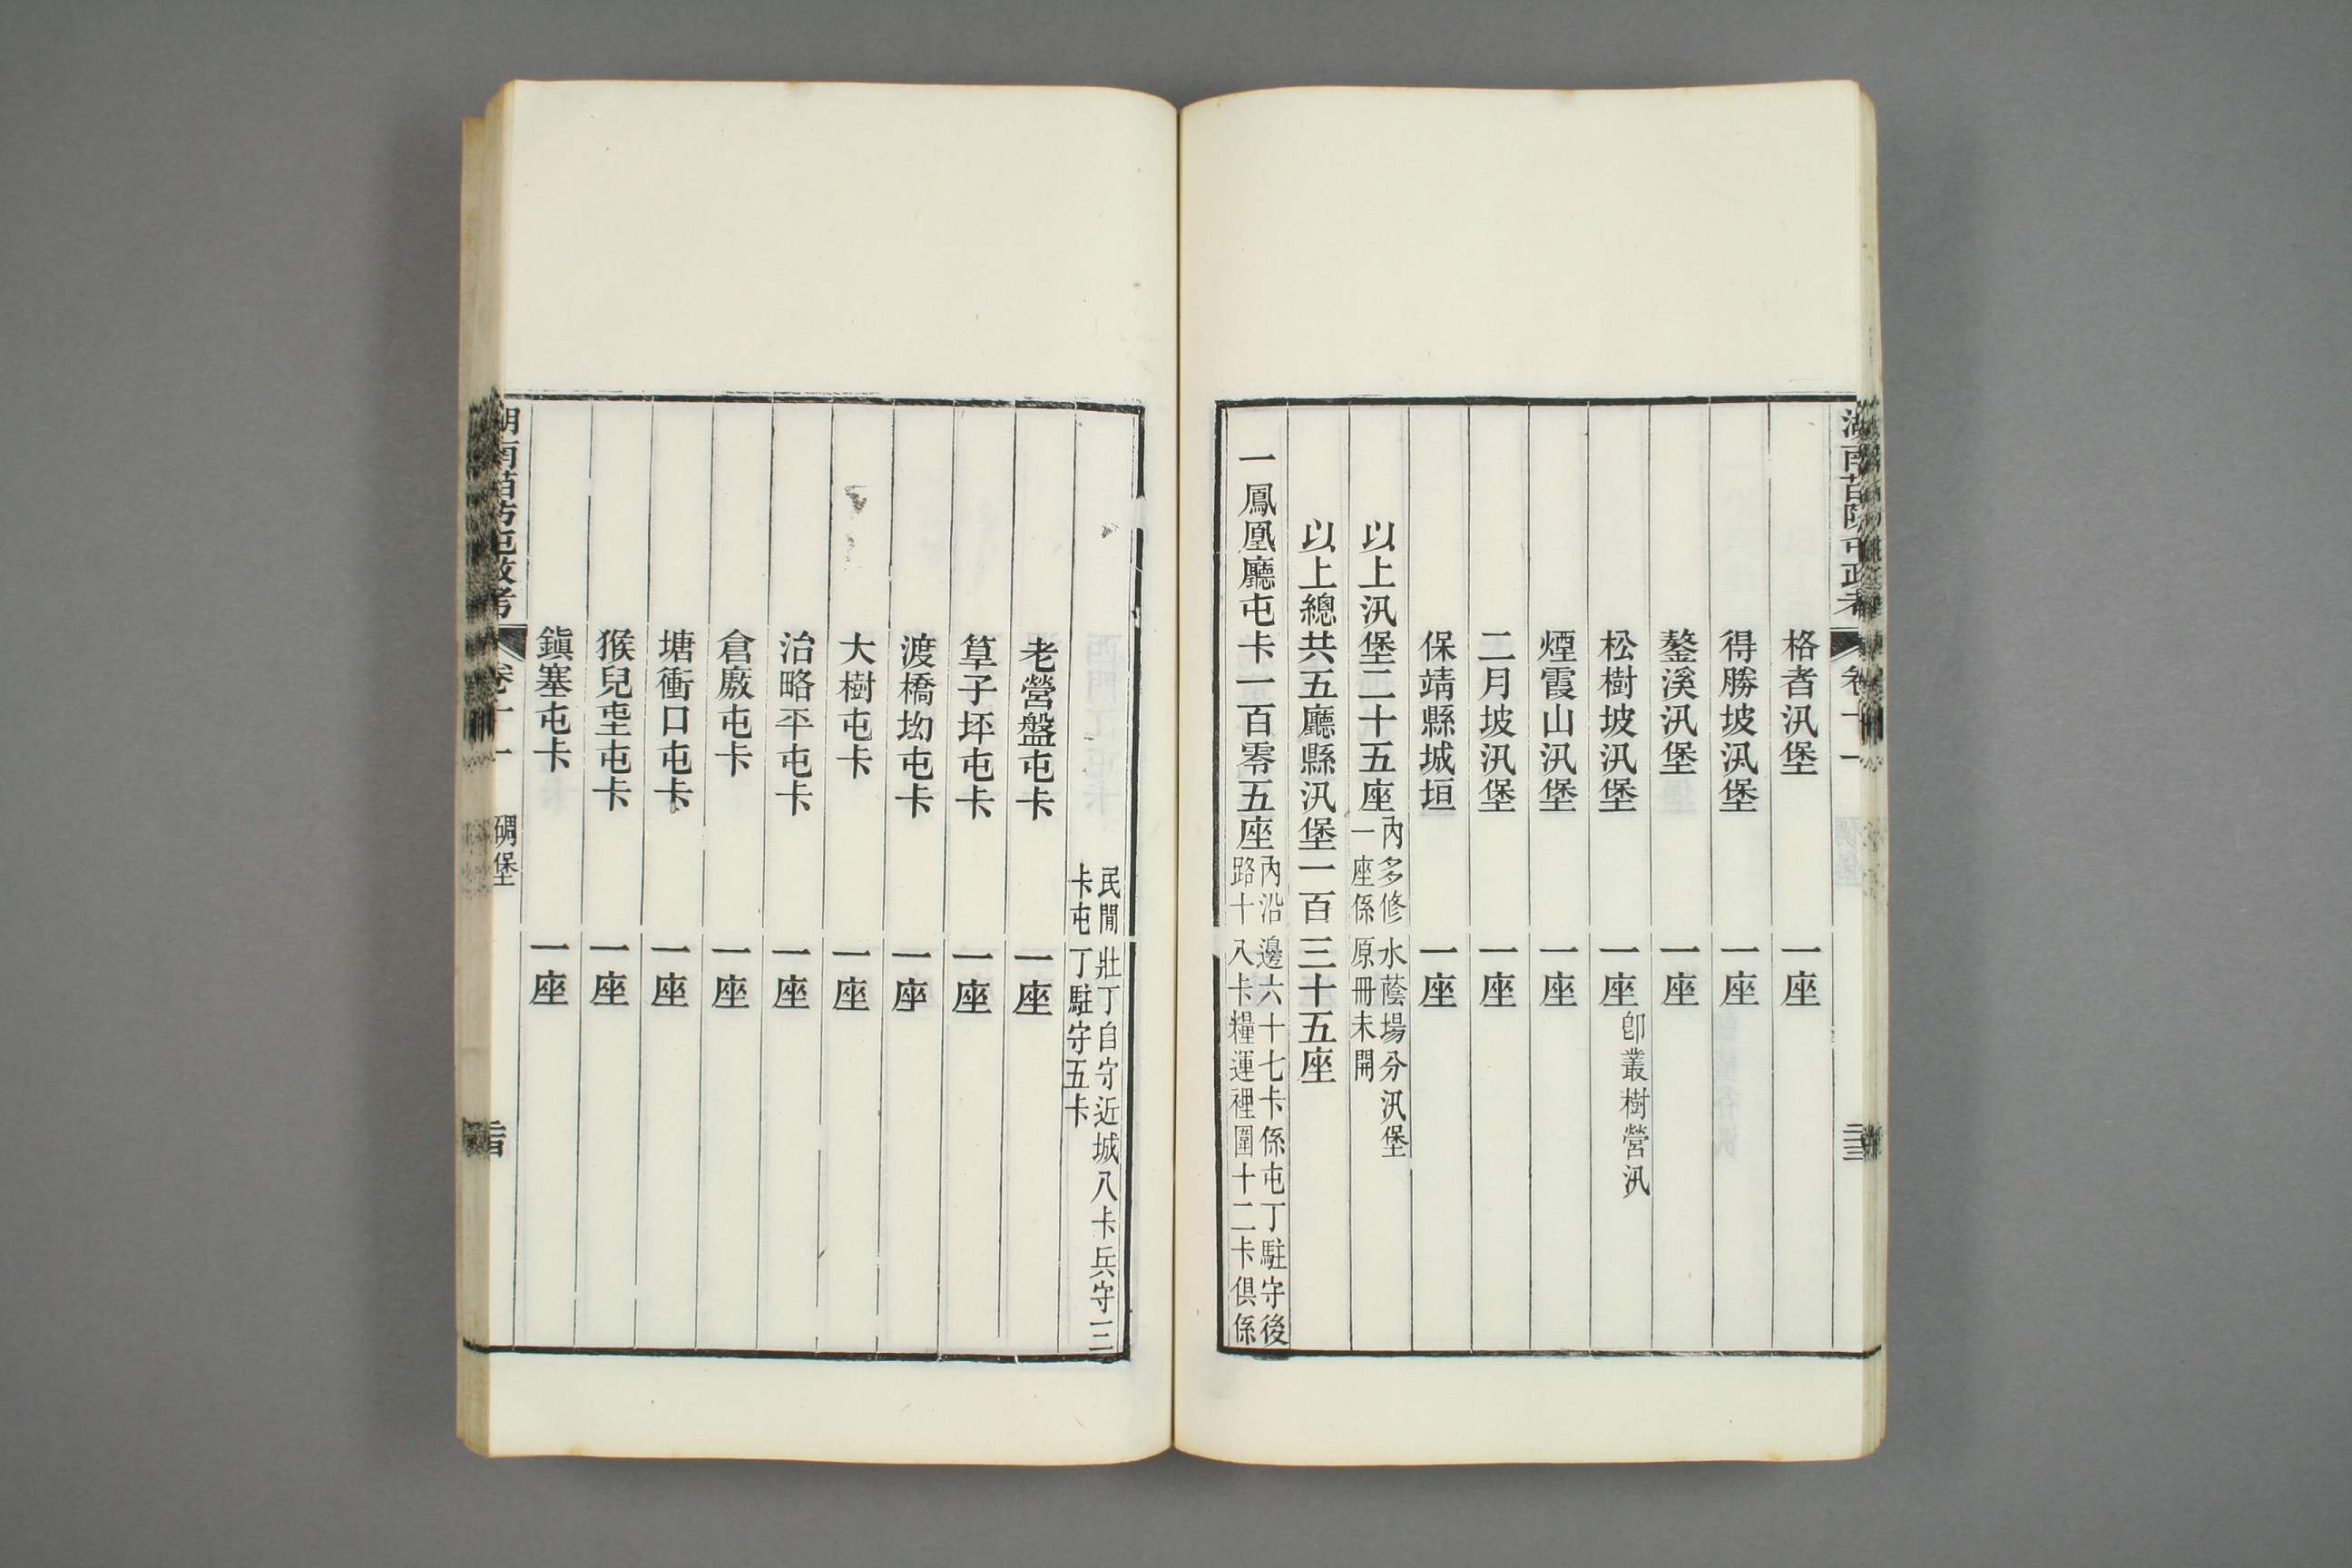 湖南苗防屯政考 卷十一
格者汛堡 一座
得勝坡汛堡 一座
鏊溪汛堡 一座
松樹坡汛堡 一座 卽叢樹營汛
煙霞山汛堡 一座
二月坡汛堡 一座
保靖縣城垣 一座
以上汛堡二十五座 內多修水蔭場分汛堡
一座係原冊未開
以上總共五廳縣汛堡一百三十五座
一鳳凰廳屯卡一百零五座 內沿邊六十七卡係屯丁駐守後
路十八卡糧運裡圍十二卡俱係
民閒壯丁自守近城八卡兵守三
卡屯丁駐守五卡
老營盤屯卡 一座
筸子坪屯卡 一座
渡橋坳屯卡 一座
大樹屯卡 一座
治略平屯卡 一座
倉廒屯卡 一座
塘衝口屯卡 一座
猴兒坉屯卡 一座
鎭塞屯卡 一座
湖南苗防屯政考 卷十一 碉堡